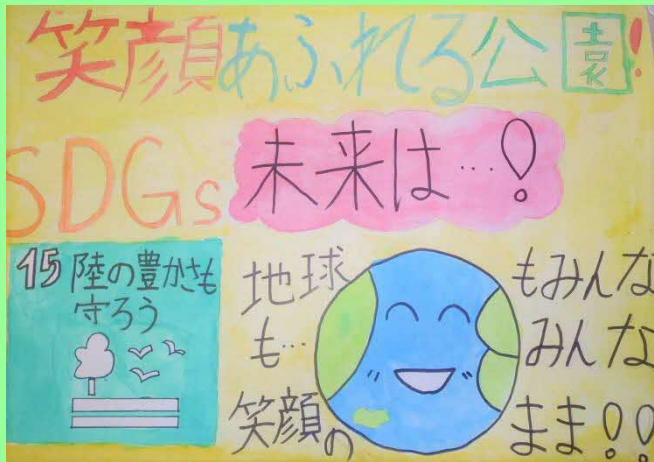 笑顔あふれる公園!
SDGs 未来は…!
15 陸の豊かさも
守ろう
地球 もみんな
も… みんな
笑顔の まま!!